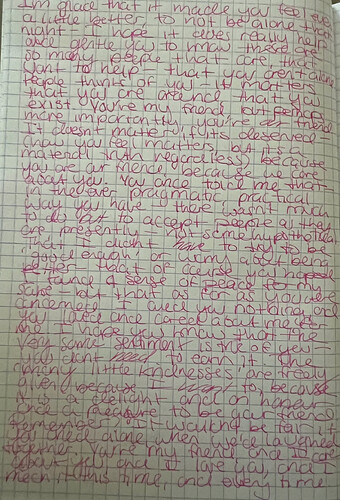 I'm glad that it made you feel even
a little better to not be alone that
night - I hope it does really help
you to know there are
so many people that care, that
want to help, that you aren't alone
it matters
that you are around, that you
exist. You're my friend, but
more importantly you're friend
It doesn't matter if it's deserved
(how you feel matters, but it's a
material truth regardless) because
you are our friend, because we care
about you. You once told me that
in that ever pragmatic, practical
way you have - there wasn't much
to do but to accept people as they
are presently - not some hypothetical
that I didn't have to try to be
'good enough' or worry about being
better, that of course you hoped
I found a sense of peace for my
sake - but that as far as you were
concerned, I owed you nothing, and
you liked and cared about me for
me. I hope you know that the
very same sentiment is true of you -
you don't need to earn it. The
many little kindnesses are really
given because I want to, because
it is a delight and an honour
and a pleasure to be your friend
Remember, it wouldn't be fair if
you cried alone when we'd laughed
together. You're my friend and I care
about you, and I love you, and I
mean it this time, and every time